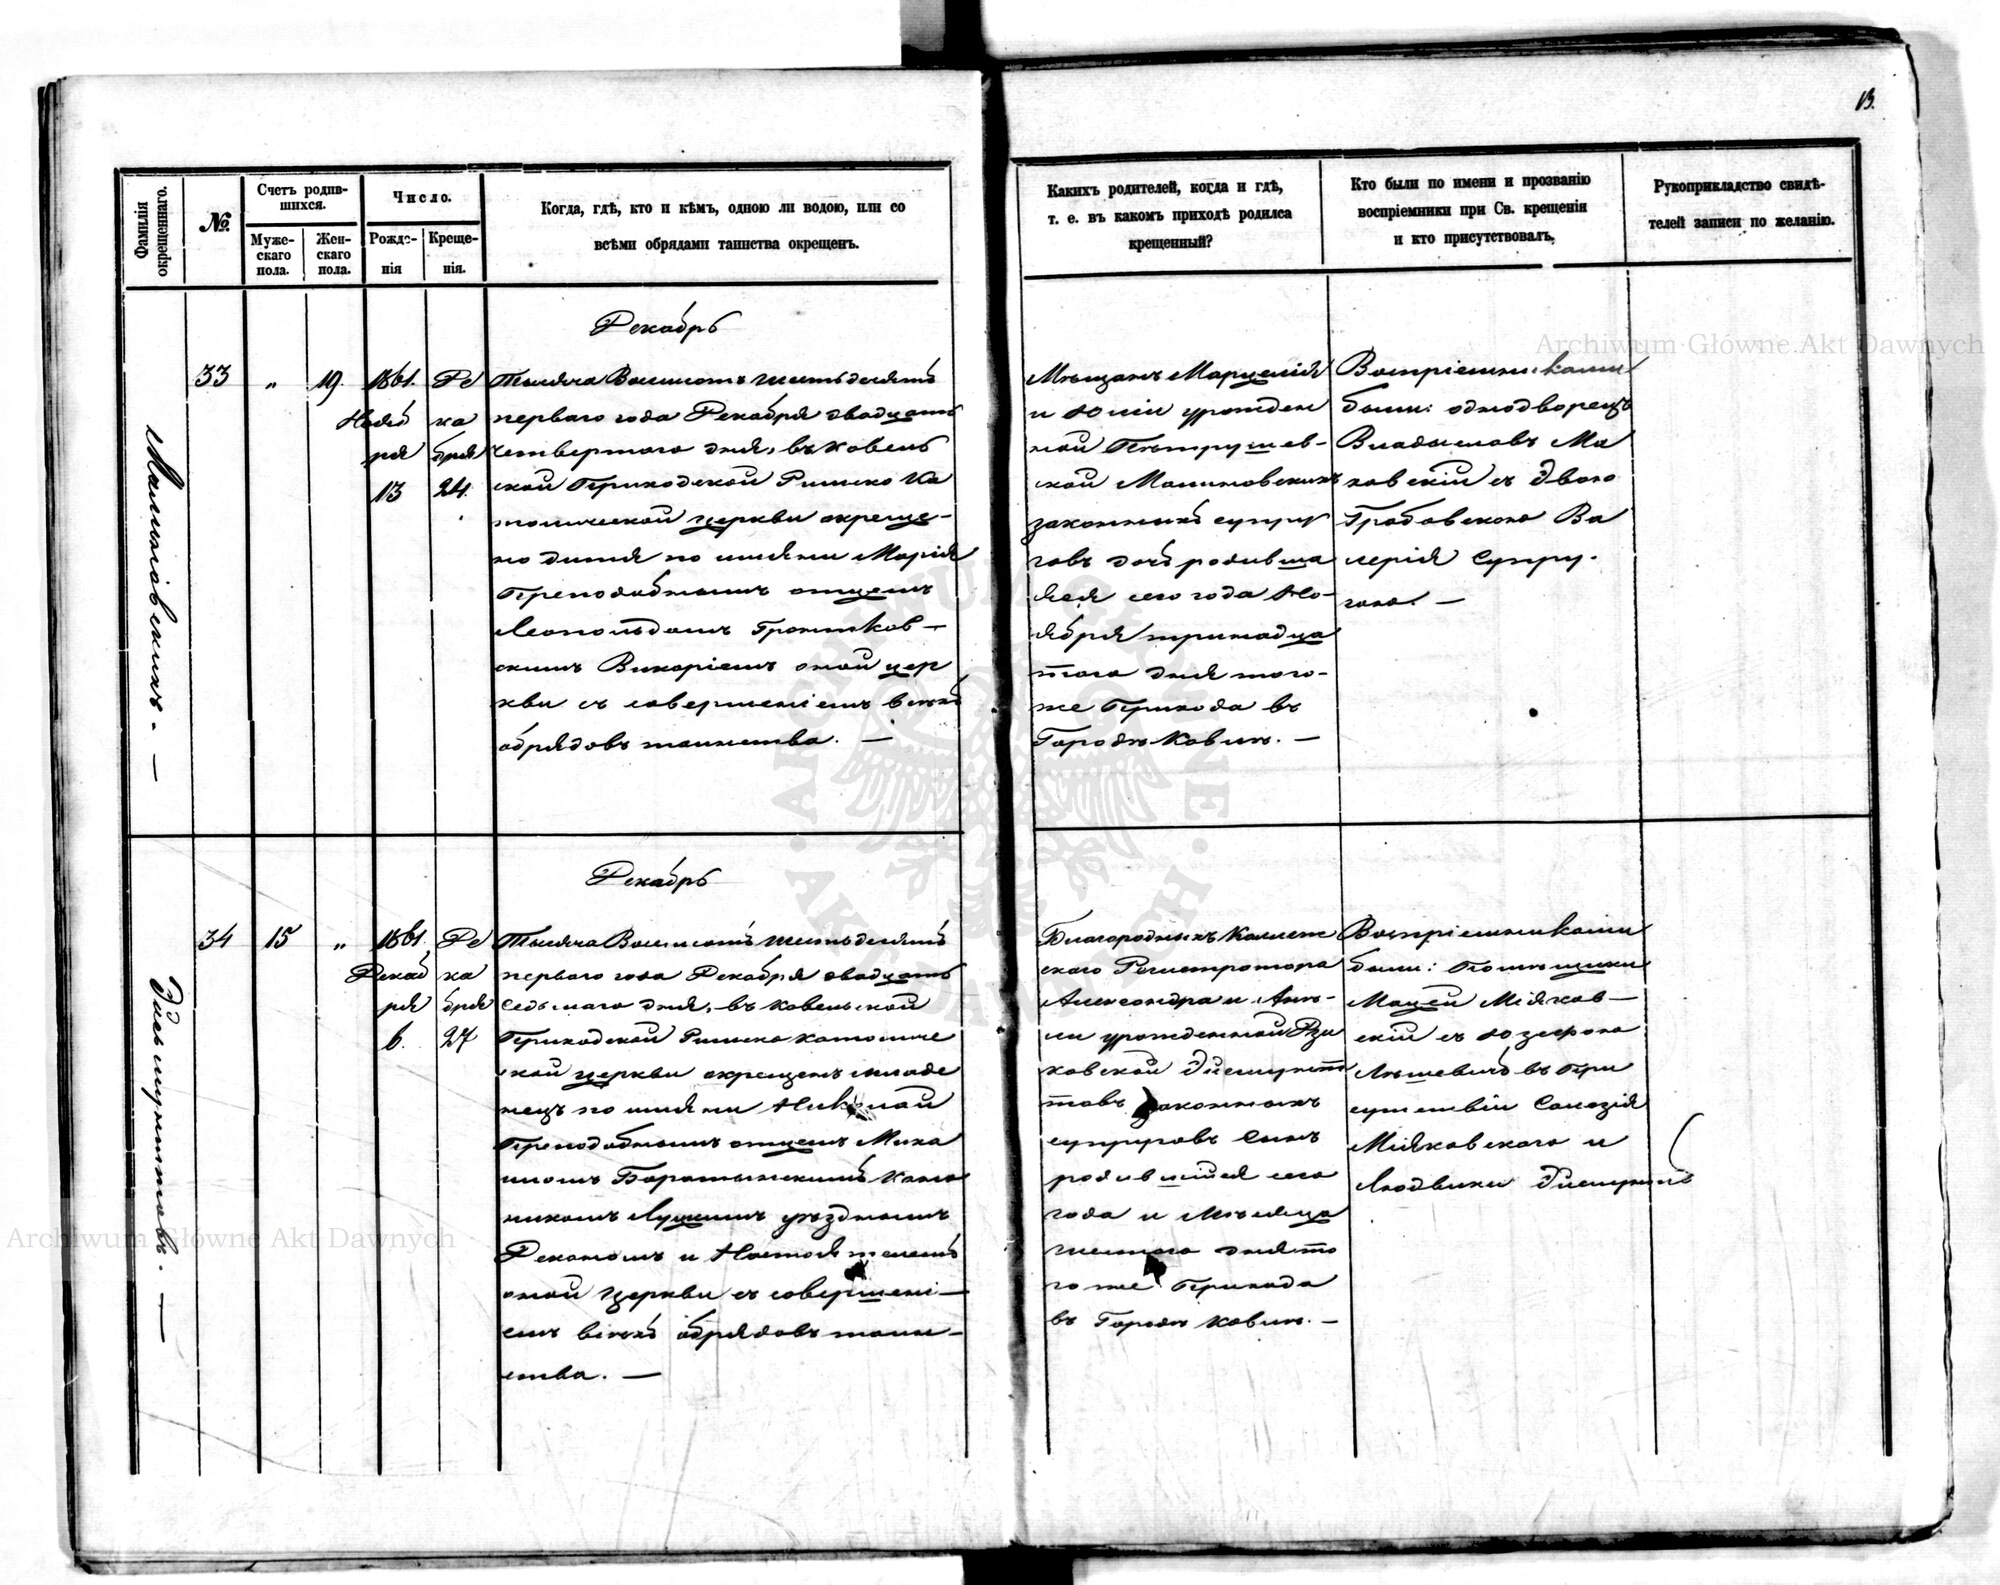 13.
Фамилія окрещеннаго.
№
Счетъ родив-
шихся.
Муже-
скаго
пола.
Жен-
скаго
пола.
Число.
Рожде-
нія
Креще-
нія.
Когда, гдѣ, кто и кѣмъ, одною ли водою, или со
всѣми обрядами таинства окрещенъ.
Какихъ родителей, когда и гдѣ,
т. е. въ какомъ приходѣ родился
крещенный?
Кто были по имени и прозванію
воспріемники при Св. крещеніи
и кто присутствовалъ.
Рукоприкладство свидѣ-
телей записи по желанію.
Малиновскихъ. —
33
„
19.
1861.
Нояб
ря
13
Де
ка
бря
24.
Декабрь
Тысяча Восемьсотъ шестьдесятъ
перваго года Декабря двадцать
четвертаго дня, въ Ковень
ской Приходской Римско Ка
толической церкви окреще-
но дитя по имяни Марія
Преподобнымъ отцемъ
Леопольдомъ Гронтков-
скимъ Викаріемъ оной цер
кви съ совершеніемъ всѣхъ
обрядовъ таинства. —
Мѣщанъ Марцелія
и Юліи урожден
ной Петрушев-
ской Малиновскихъ
законныхъ супру
говъ дочь родивша
яся сего года Но-
ября тринадца
таго дня того-
же Прихода въ
Городѣ Ковнѣ. —
Воспріемниками
были: однодворецъ
Владыславъ Ма
ковскій съ Двою
Грабовскою Ва
лерія Супру-
гою. —
Эйсмунтовъ. —
34
15
„
1861.
Декаб
ря
6.
Де
ка
бря
27
Декабрь
Тысяча Восемьсотъ шестьдесятъ
перваго года Декабря двадцать
седьмаго дня, въ Ковенской
Приходской Римско католиче
ской церкви окрещенъ младе
нецъ по имяни Николай
Преподобнымъ отцемъ Миха
иломъ Баратынскимъ Кано
никомъ Луцкимъ уѣзднымъ
Деканомъ и Настоятелемъ
оной церкви съ совершені-
емъ всѣхъ обрядовъ таин-
ства. —
Благородныхъ Коллеж
скаго Регистратора
Александра и Ан-
ны урожденной Рзи
ковской Эйсмунт
товъ законныхъ
супруговъ сынъ
родившійся сего
года и мѣсяца
шестаго дня то
го же Прихода
въ Городѣ Ковнѣ. —
Воспріемниками
были: Помѣщики
Мацей Міяков-
скій съ Юзефою
Ляшевичъ въ При
сутствіи Салезія
Міяковскаго и
Людвики Эйсмунтъ
Archiwum Główne Akt Dawnych
Archiwum Główne Akt Dawnych
ARCHIWUM GŁÓWNE AKT DAWNYCH